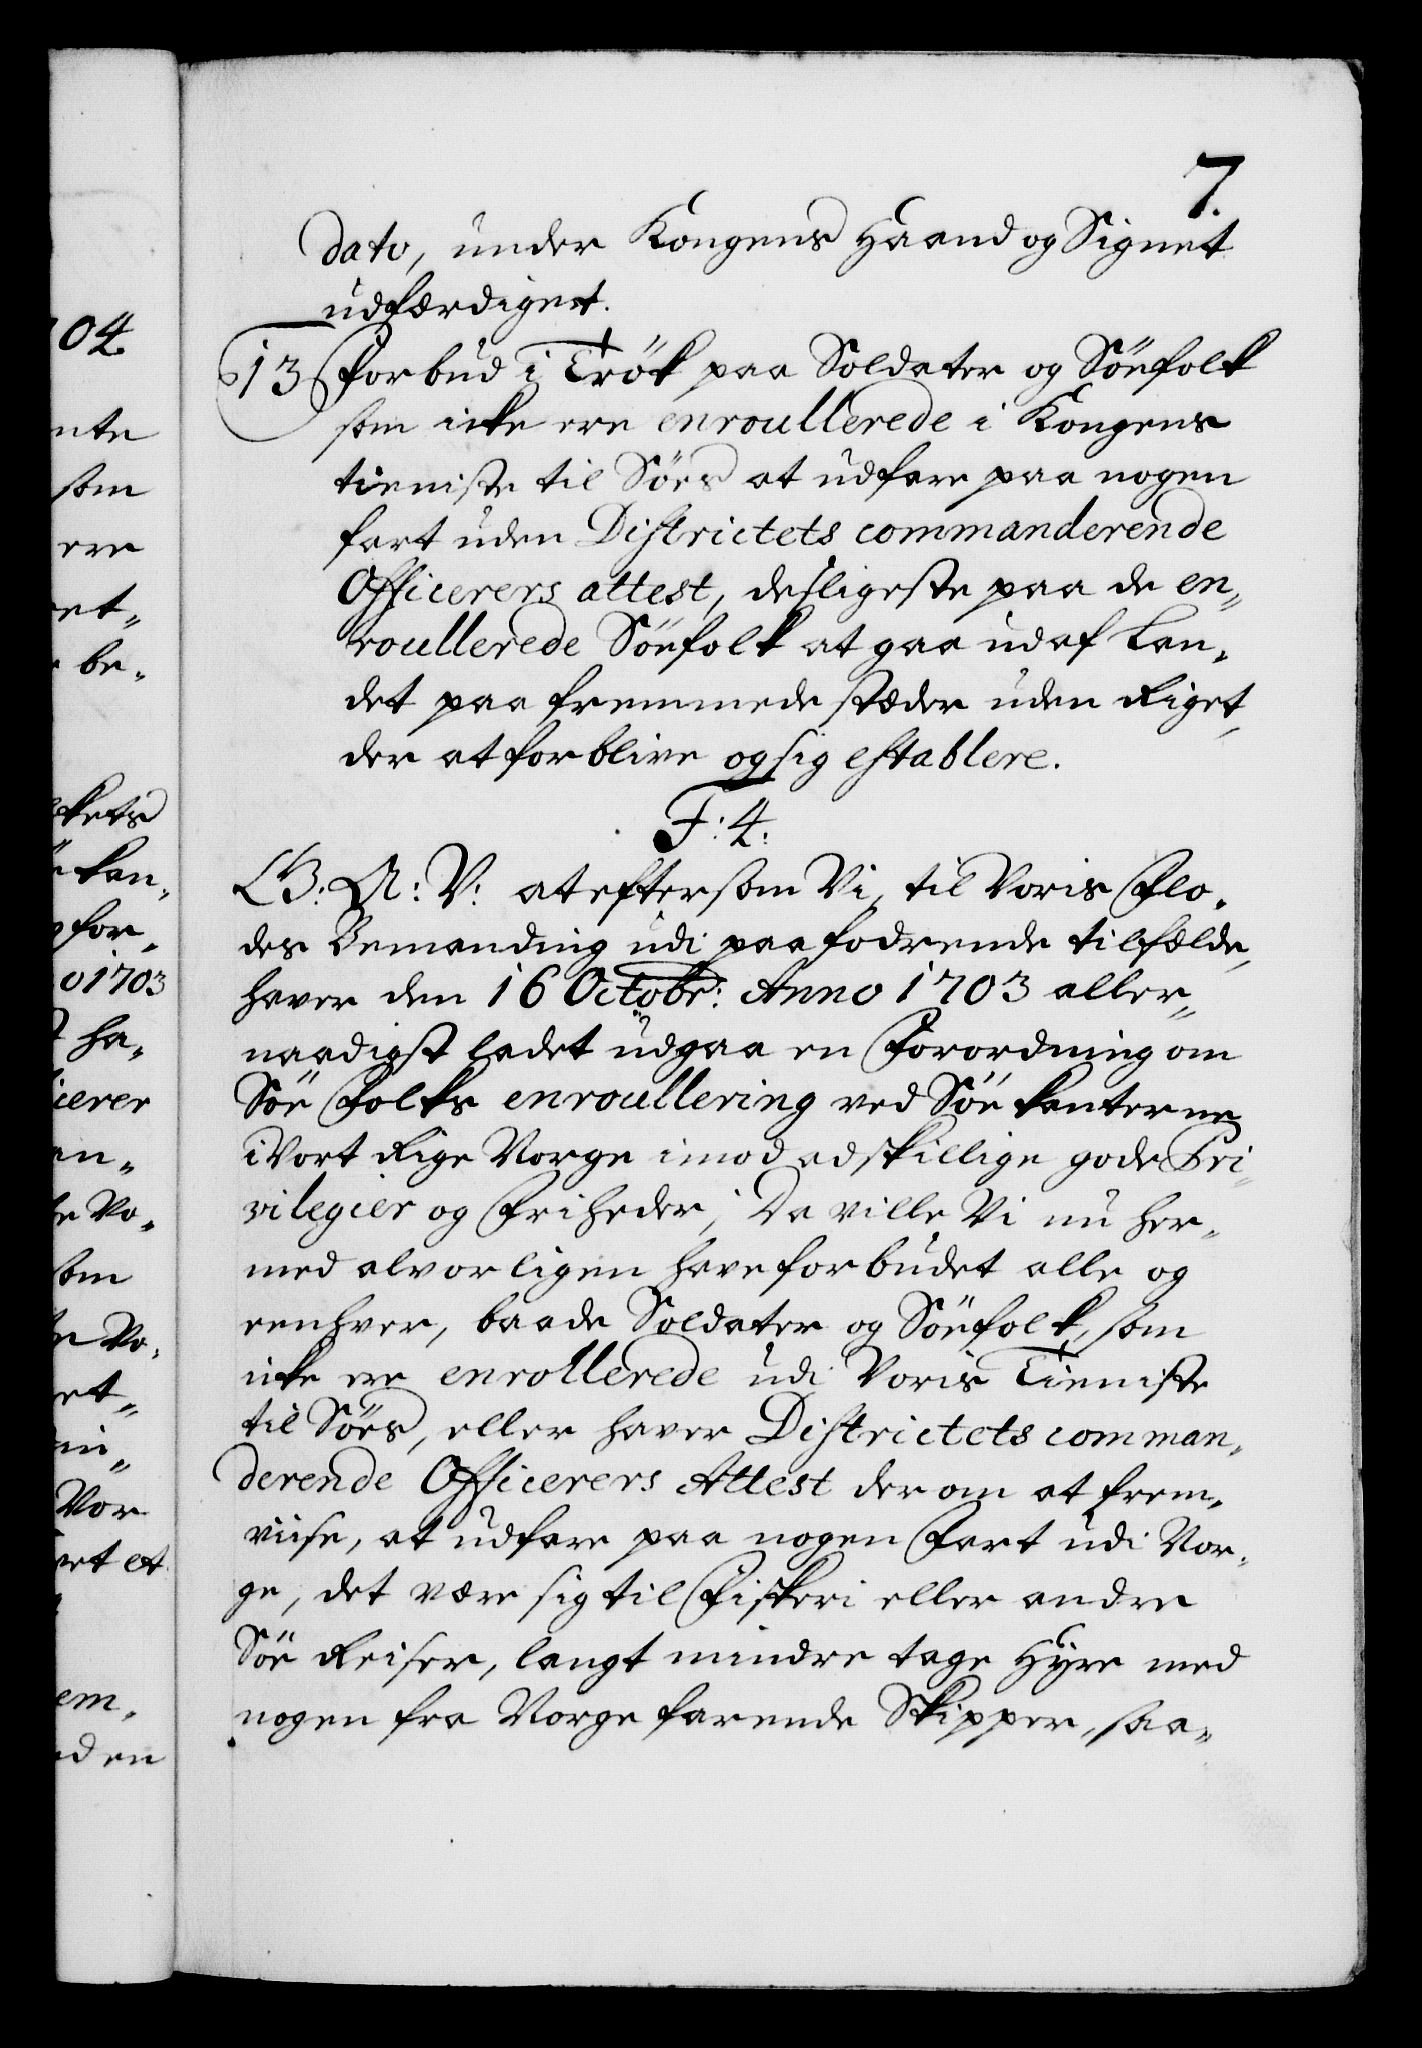 7.
dato, under Kongens Haand og Signet
udfærdiget.
13 Forbud i Trök paa Soldater og Söefolk
som icke ere enroullerede i Kongens
tieniste til Söes at udfare paa nogen
fart uden Districtets commanderende
Officerers attest, desligeste paa de en„
roullerede Söefolk at gaa ud af Lan„
det paa fremmede stæder uden Riget,
der at forblive og sig establere.
F: 4:
G: A: V: at eftersom Vi, til Voris Flo„
des Bemanding udi paafodrende tilfælde,
haver den 16 Octobr: Anno 1703 aller„
naadigst ladet udgaa en Forordning om
Söe Folks enroullering ved Söe kanterne
i Vort Rige Norge imod adskillige gode Pri„
vilegier og Friheder, Da ville Vi nu her„
med alvorligen have forbudet alle og
eenhver, baade Soldater og Söefolk, som
icke ere enrollerede udi Voris Tieniste
til Söes, eller haver Districtets comman„
derende Officerers Attest derom at frem„
viise, at udfare paa nogen Fart udi Nor„
ge, det være sig til Fiskeri eller andre
Söe Reiser, langt mindre tage Hyre med
nogen fra Norge farende Skipper, saa„
04.
nte
som
ere
et„
be„
kets
kan„
for„
o 1703
ha„
icerer
en„
e No„
som
No„
et„
in„
Vor
et et
em„
eden